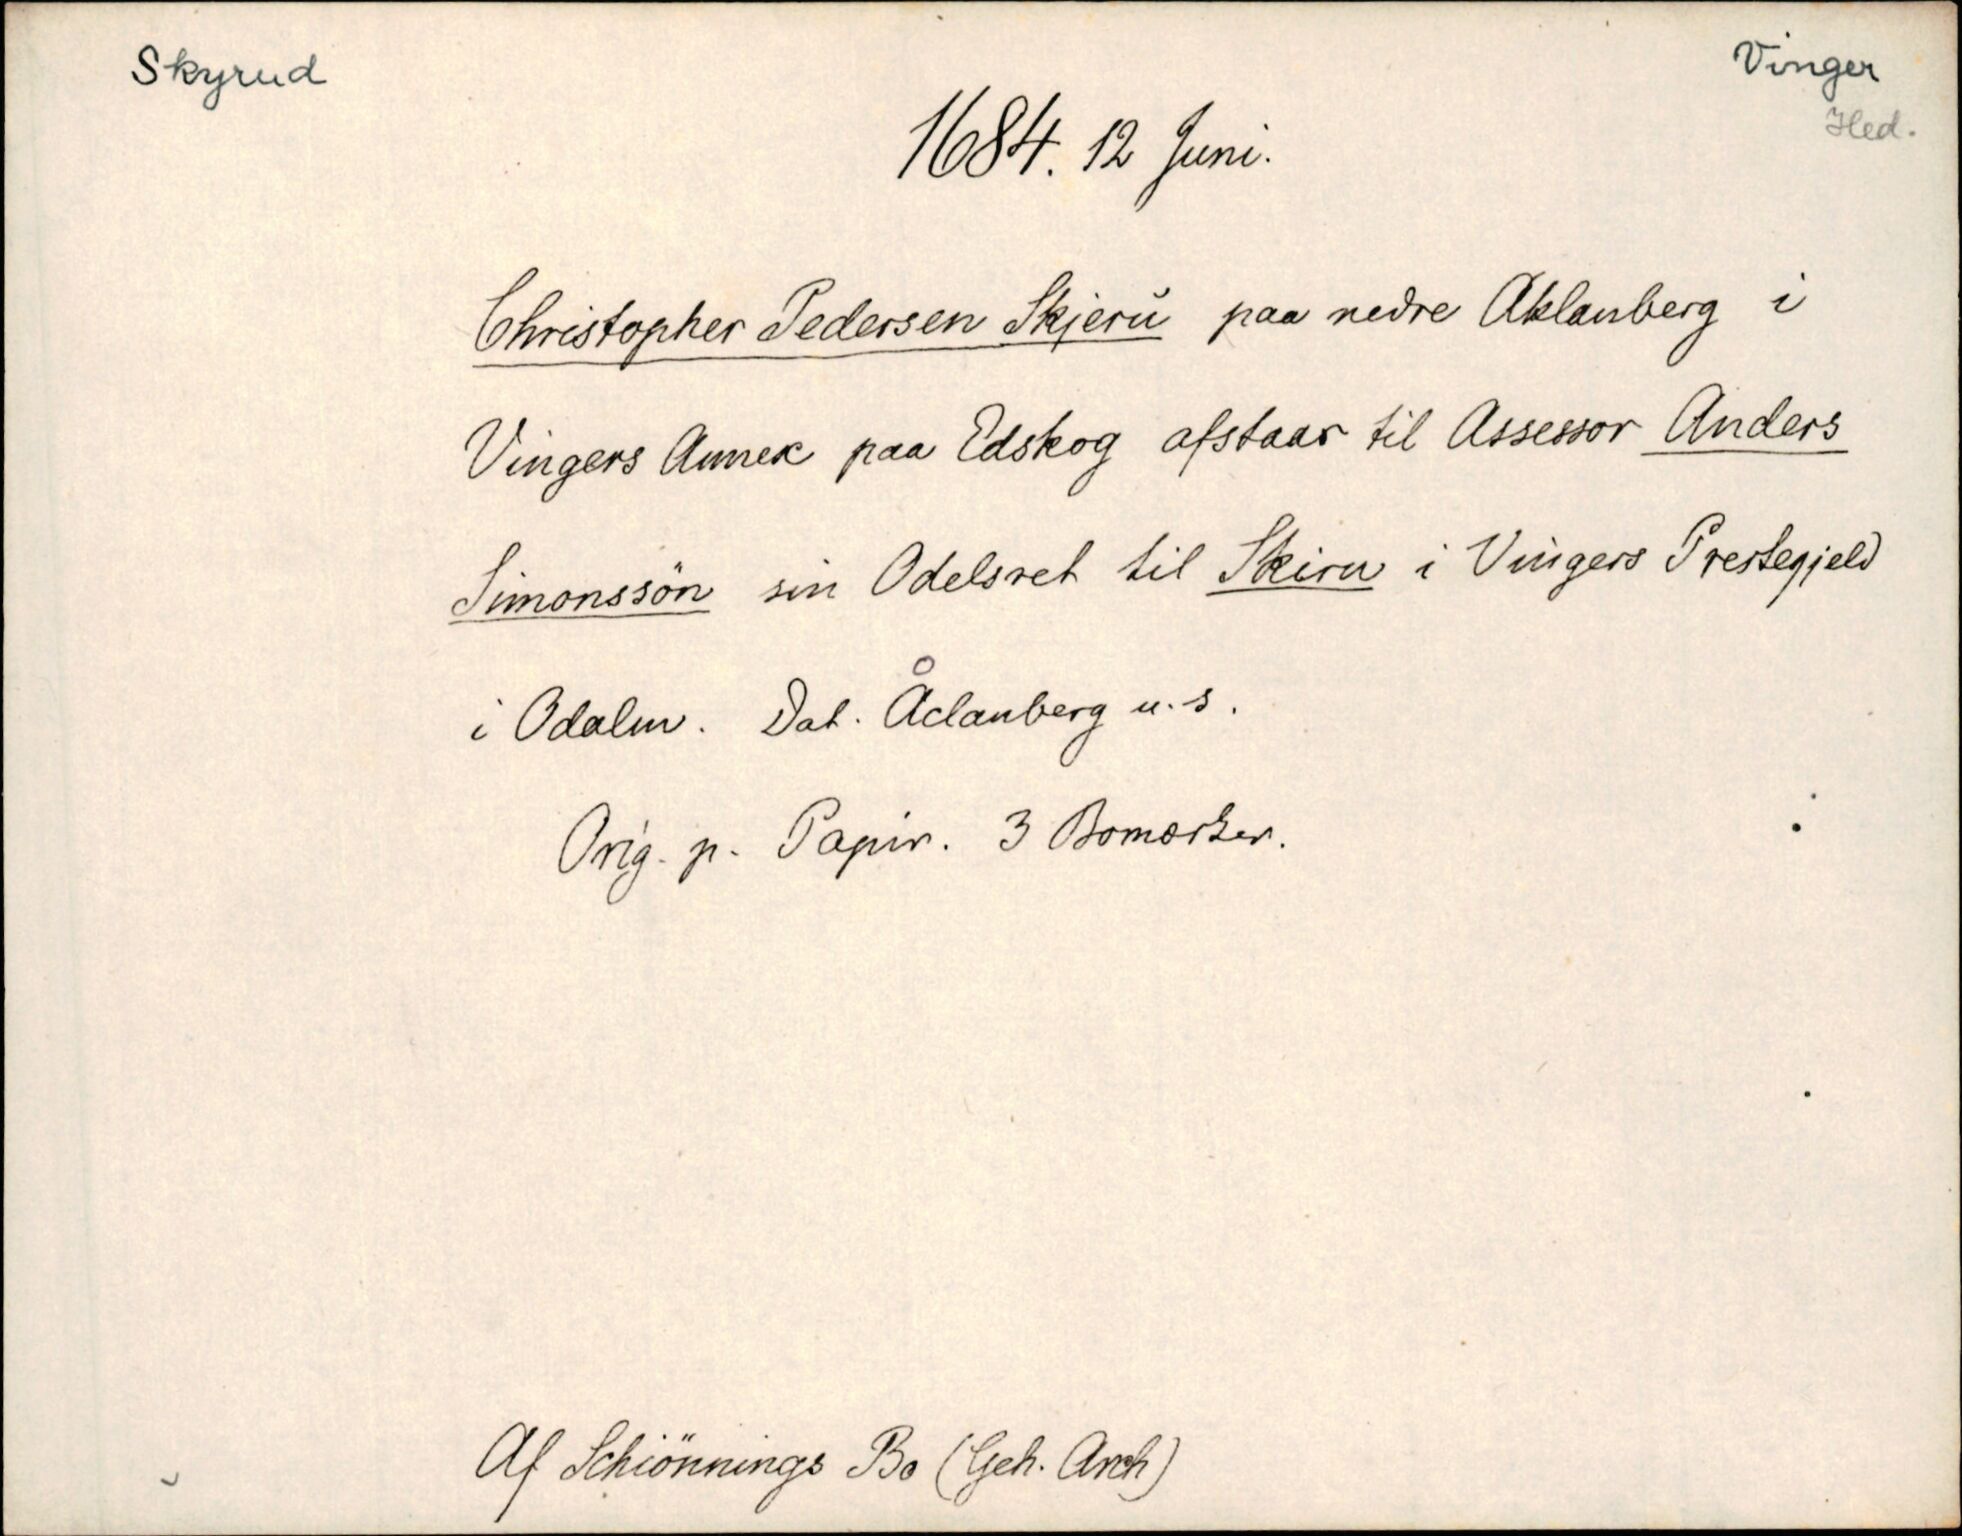 Skyrud
Vinger
Hed.
1684. 12 Juni.
Christopher Pedersen Skjerŭ paa nedre Aklanberg i
Vingers Annex paa Edskog afstaar til Assessor Anders
Simonssön sin Odelsret til Skiru i Vingers Prestegjeld
i Odalen. Dat. Åclanberg u. s.
Orig. p. Papir. 3 Bomærker.
Af Schiönnings Bo (Geh. Arch)